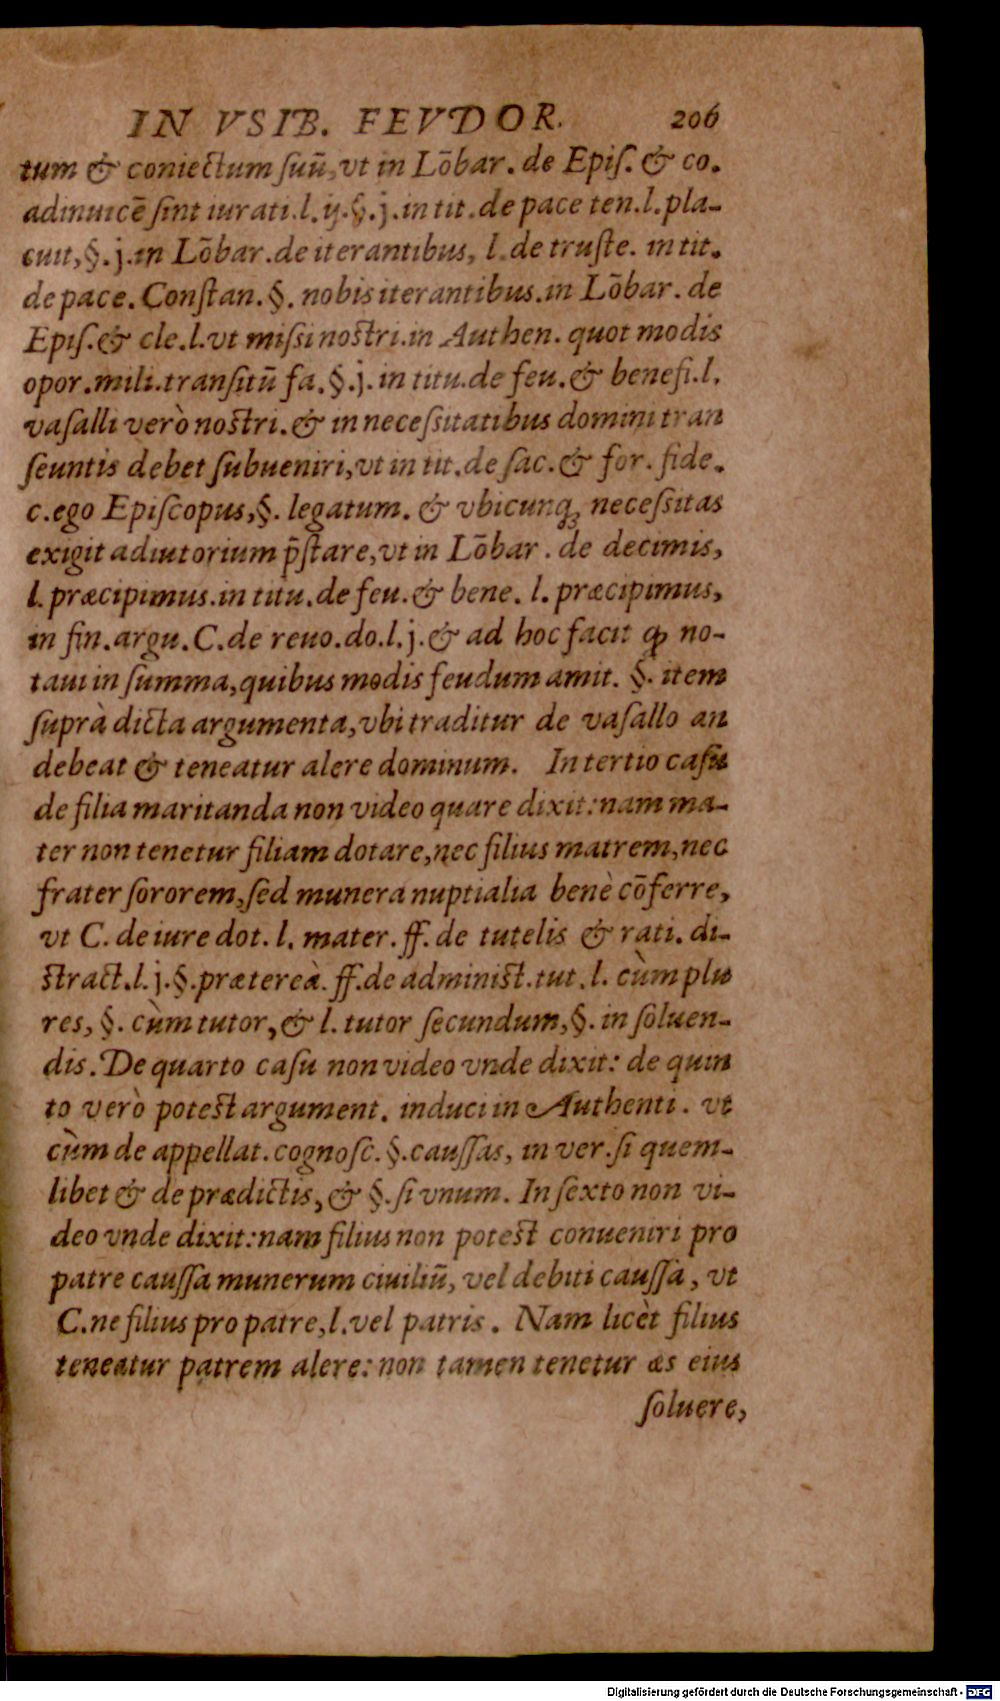 IN VSIB. FEVDOR. 206
tum & coniectum suũ, vt in Lõbar. de Epiſ. & co.
adinuicẽ ſint iurati. l. ij. §. j. in tit. de pace ten. l. pla-
cuit, §. j. in Lõbar. de iterantibus, l. de truſte. in tit.
de pace. Conſtan. §. nobis iterantibus. in Lõbar. de
Epiſ. & cle. l. vt miſsi noſtri. in Authen. quot modis
opor. mili. tranſitũ fa. §. j. in titu. de feu. & benefi. l.
vaſalli verò noſtri. & in neceſsitatibus domini tran
ſeuntis debet ſubueniri, vt in tit. de ſac. & for. fide.
c. ego Epiſcopus, §. legatum. & vbicunq; neceſsitas
exigit adiutorium p̃ſtare, vt in Lõbar. de decimis,
l. præcipimus. in titu. de feu. & bene. l. præcipimus,
in fin. argu. C. de reuo. do. l. j. & ad hoc facit ꝙ no-
taui in ſumma, quibus modis feudum amit. §. item
ſuprà dicta argumenta, vbi traditur de vaſallo an
debeat & teneatur alere dominum. In tertio caſu
de filia maritanda non video quare dixit: nam ma-
ter non tenetur filiam dotare, nec filius matrem, nec
frater ſororem, ſed munera nuptialia benè cõferre,
vt C. de iure dot. l. mater. ff. de tutelis & rati. di-
ſtract. l. j. §. prætereà. ff. de adminiſt. tut. l. cùm plu
res, §. cùm tutor, & l. tutor ſecundum, §. in ſoluen-
dis. De quarto caſu non video vnde dixit: de quin
to verò poteſt argument. induci in Authenti. vt
cùm de appellat. cognoſc. §. cauſſas, in ver. ſi quem-
libet & de prædictis, & §. ſi vnum. In ſexto non vi-
deo vnde dixit: nam filius non poteſt conueniri pro
patre cauſſa munerum ciuiliũ, vel debiti cauſſa, vt
C. ne filius pro patre, l. vel patris. Nam licèt filius
teneatur patrem alere: non tamen tenetur æs eius
ſoluere,
Digitalisierung gefördert durch die Deutsche Forschungsgemeinschaft - DFG